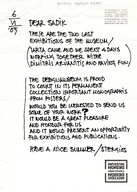 6
VI
'09
DEAR SADIK
THESE ARE THE TWO LAST
EXHIBITIONS OF THE MUSEUM/
CAME AND WE SPENT 4 DAYS
WORKING TOGETHER WITH
DIMITRIS
THE DESIGNMUSEUM IS PROUD
TO COUNT IN ITS PERMANENT
COLLECTION IMPORTANT MONOGRAPHS
FROM POSTERS/
WOULD YOU BE INTERESTED TO SEND US
SOME OF YOUR WORK?
IT WOULD BE A GREAT PLEASURE
AND HONOUR FOR US.
AND IT WOULD PRESENT AN OPPORTUNITY
FOR EXHIBITIONS AND PUBLICATIONS.
HAVE A NICE SUMMER/ STERGIOS